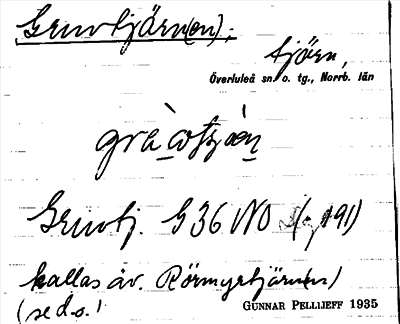 Gruvtjärn(en);
tjärn,
Överluleå sn. o. tg., Norrb. län
Gruvtj. G36 NO
kallas äv. Rörmyrtjärn(en)
(se d. o.)
GUNNAR PELLIJEFF 1935